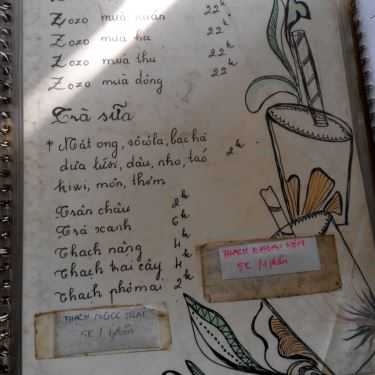 Zozo mùa xuân 22k
Zozo mùa hạ 22k
Zozo mùa thu 22k
Zozo mùa đông 22k
Trà sữa
* Mật ong, sôcôla, bạc hà
dưa lưới, dâu, nho, táo
kiwi, môn, thơm
Trân châu 2k
Trà xanh 6k
Thạch nàng 4k
Thạch trái cây 4k
Thạch phômai 2k
THẠCH
5K / 1 phần
THẠCH NGỌC TRAI
5K / 1 phần